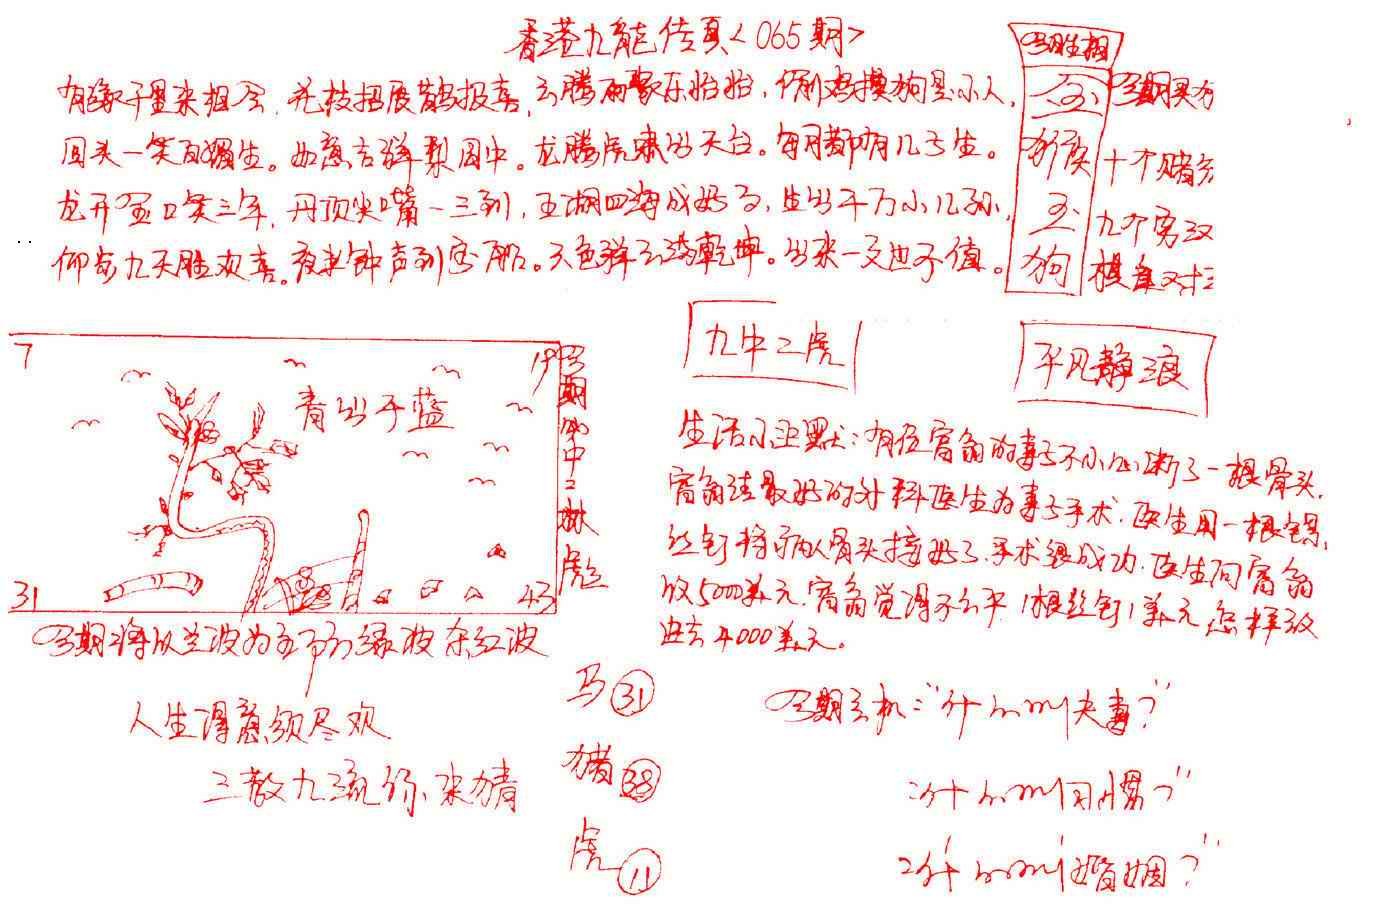 香港九龍传真<065期>
有缘千里来相会，花枝招展鹊报喜，云腾雨聚乐怡怡，偷鸡摸狗是小人，
回头一笑百媚生。如意吉祥梨园中。龙腾虎啸出天台。每月都有几天生。
龙开金口笑三年，丹顶尖嘴一三到，五湖四海成好了，生出千万小儿孙，
仰与九天胜欢喜。夜半钟声到客船。天色祥云满乾坤。出来一文也不值。
生相
狗
猴
狗
十个赌
九个
九中二虎
平风静浪
7
19
31
43
青出于蓝
期 中二
生活小幽默：有位富翁的妻子不小心断了一根骨头，
富翁请最好的外科医生为妻子手术，医生用一根
丝钉将病人骨头接好了，手术很成功，医生向富翁
收5000美元，富翁觉得不公平，1根丝钉1美元，怎样收
出去4000美元。
期将以兰波为主 绿波 红波
人生得意须尽欢
三教九流你来猜
马 31
猪 38
虎 11
期玄机："什么叫夫妻?"
"什么叫习惯?"
"什么叫婚姻?"